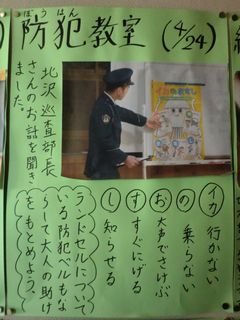 ぼうはん
防犯教室 (4/24)
北沢巡査部長
さんのお話を聞き
ました。
イカのおすし
イカ 行かない
の 乗らない
お 大声でさけぶ
す すぐにげる
し 知らせる
ランドセルについて
いる防犯ベルもな
らして大人の助け
をもとめよう。